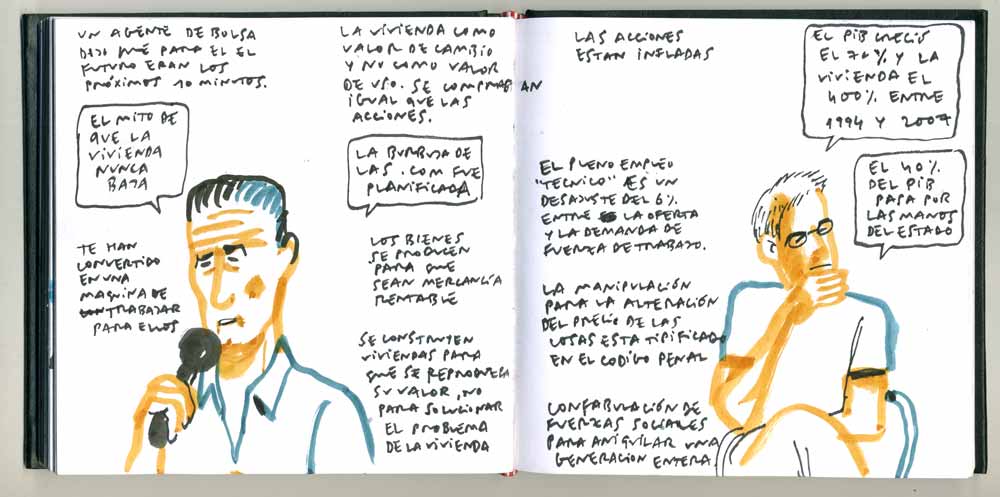 UN AGENTE DE BOLSA
DIJO QUE PARA EL EL
FUTURO ERAN LOS
PRÓXIMOS 10 MINUTOS.
EL MITO DE
QUE LA
VIVIENDA
NUNCA
BAJA
TE HAN
CONVERTIDO
EN UNA
MAQUINA DE
TRABAJAR
PARA ELLOS
LA VIVIENDA COMO
VALOR DE CAMBIO
Y NO COMO VALOR
DE USO. SE COMPRABAN
IGUAL QUE LAS
ACCIONES.
LA BURBUJA DE
LAS .COM FUE
PLANIFICADA
LOS BIENES
SE PRODUCEN
PARA QUE
SEAN MERCANCÍA
RENTABLE
SE CONSTRUYEN
VIVIENDAS PARA
QUE SE REPRODUZCA
SU VALOR, NO
PARA SOLUCIONAR
EL PROBLEMA
DE LA VIVIENDA
LAS ACCIONES
ESTAN INFLADAS
EL PIB CRECIÓ
EL 70% Y LA
VIVIENDA EL
400% ENTRE
1994 Y 2007
EL PLENO EMPLEO
"TECNICO" ES UN
DESAJUSTE DEL 6%
ENTRE LA OFERTA
Y LA DEMANDA DE
FUERZA DE TRABAJO.
EL 40%
DEL PIB
PASA POR
LAS MANOS
DEL ESTADO
LA MANIPULACIÓN
PARA LA ALTERACIÓN
DEL PRECIO DE LAS
COSAS ESTA TIPIFICADO
EN EL CODIGO PENAL
CONFABULACIÓN DE
FUERZAS SOCIALES
PARA ANIQUILAR UNA
GENERACION ENTERA.